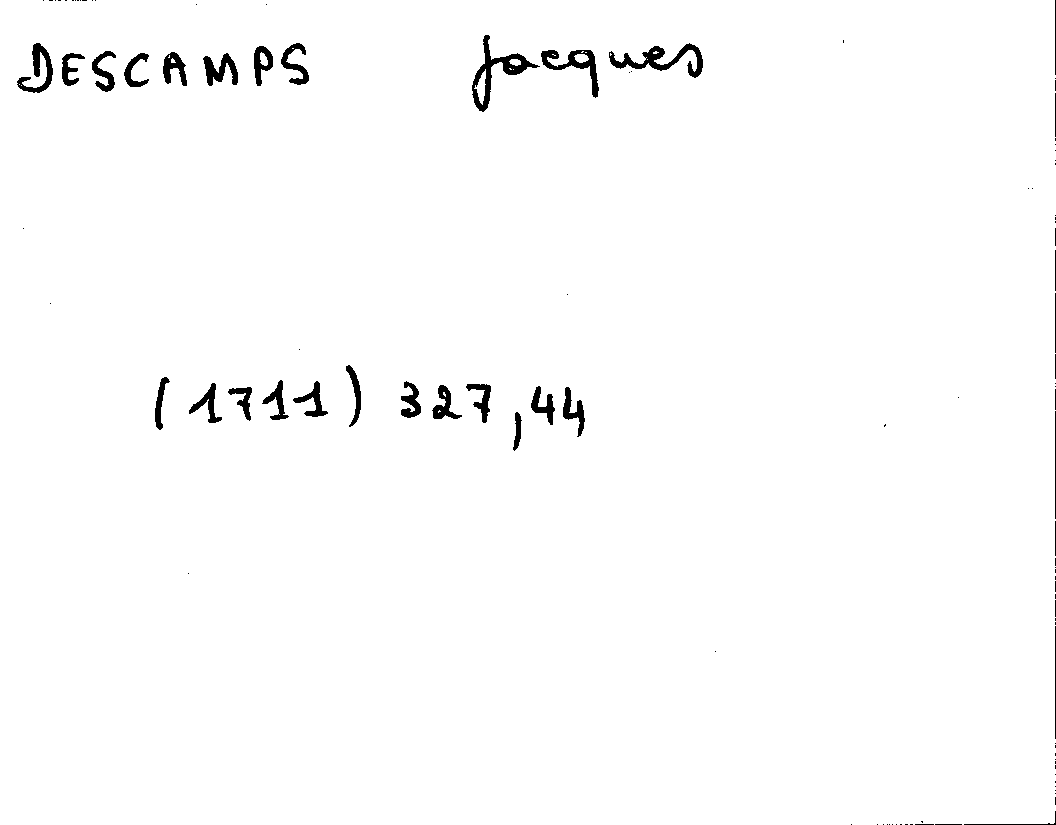 DESCAMPS Jacques
(1711) 327,44